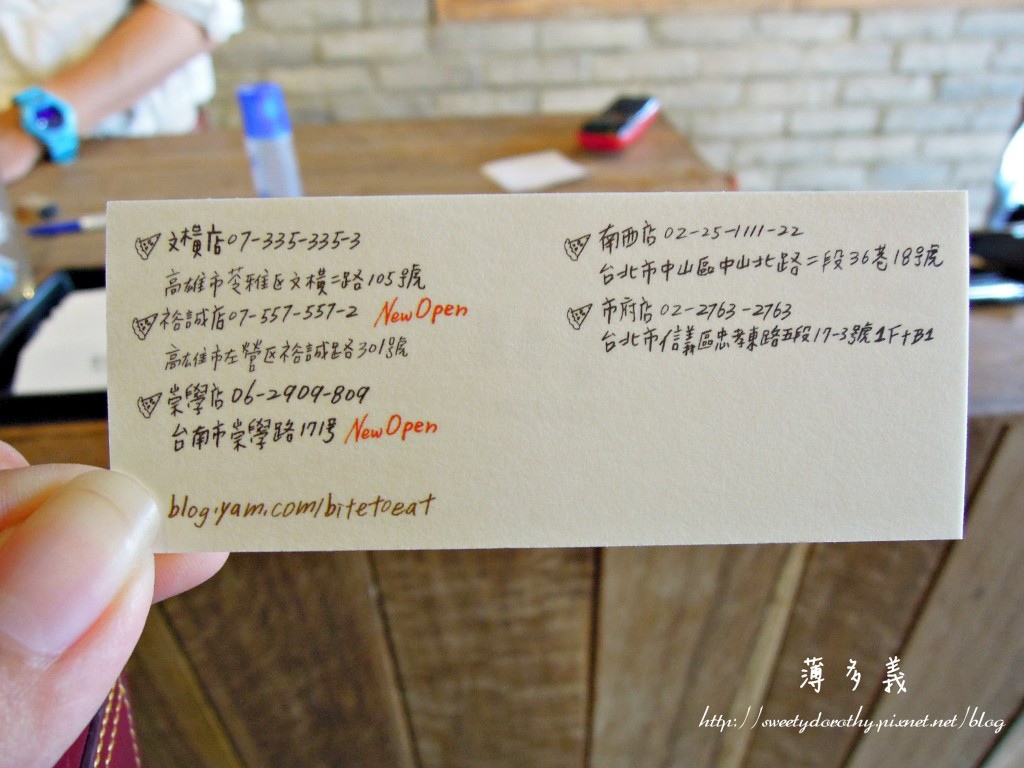 文橫店07-335-335-3
高雄市苓雅區文橫二路105號
裕誠店07-557-557-2 New Open
高雄市左營區裕誠路301號
崇學店06-2909-809
台南市崇學路171号 New Open
blog.yam.com/bitetoeat
南西店 02-25-1111-22
台北市中山區中山北路二段36巷18号虎
市府店 02-2763-2763
台北市信義區忠孝東路五段17-3號1F+B1
薄多義
http://sweetydorothy.pixnet.net/blog